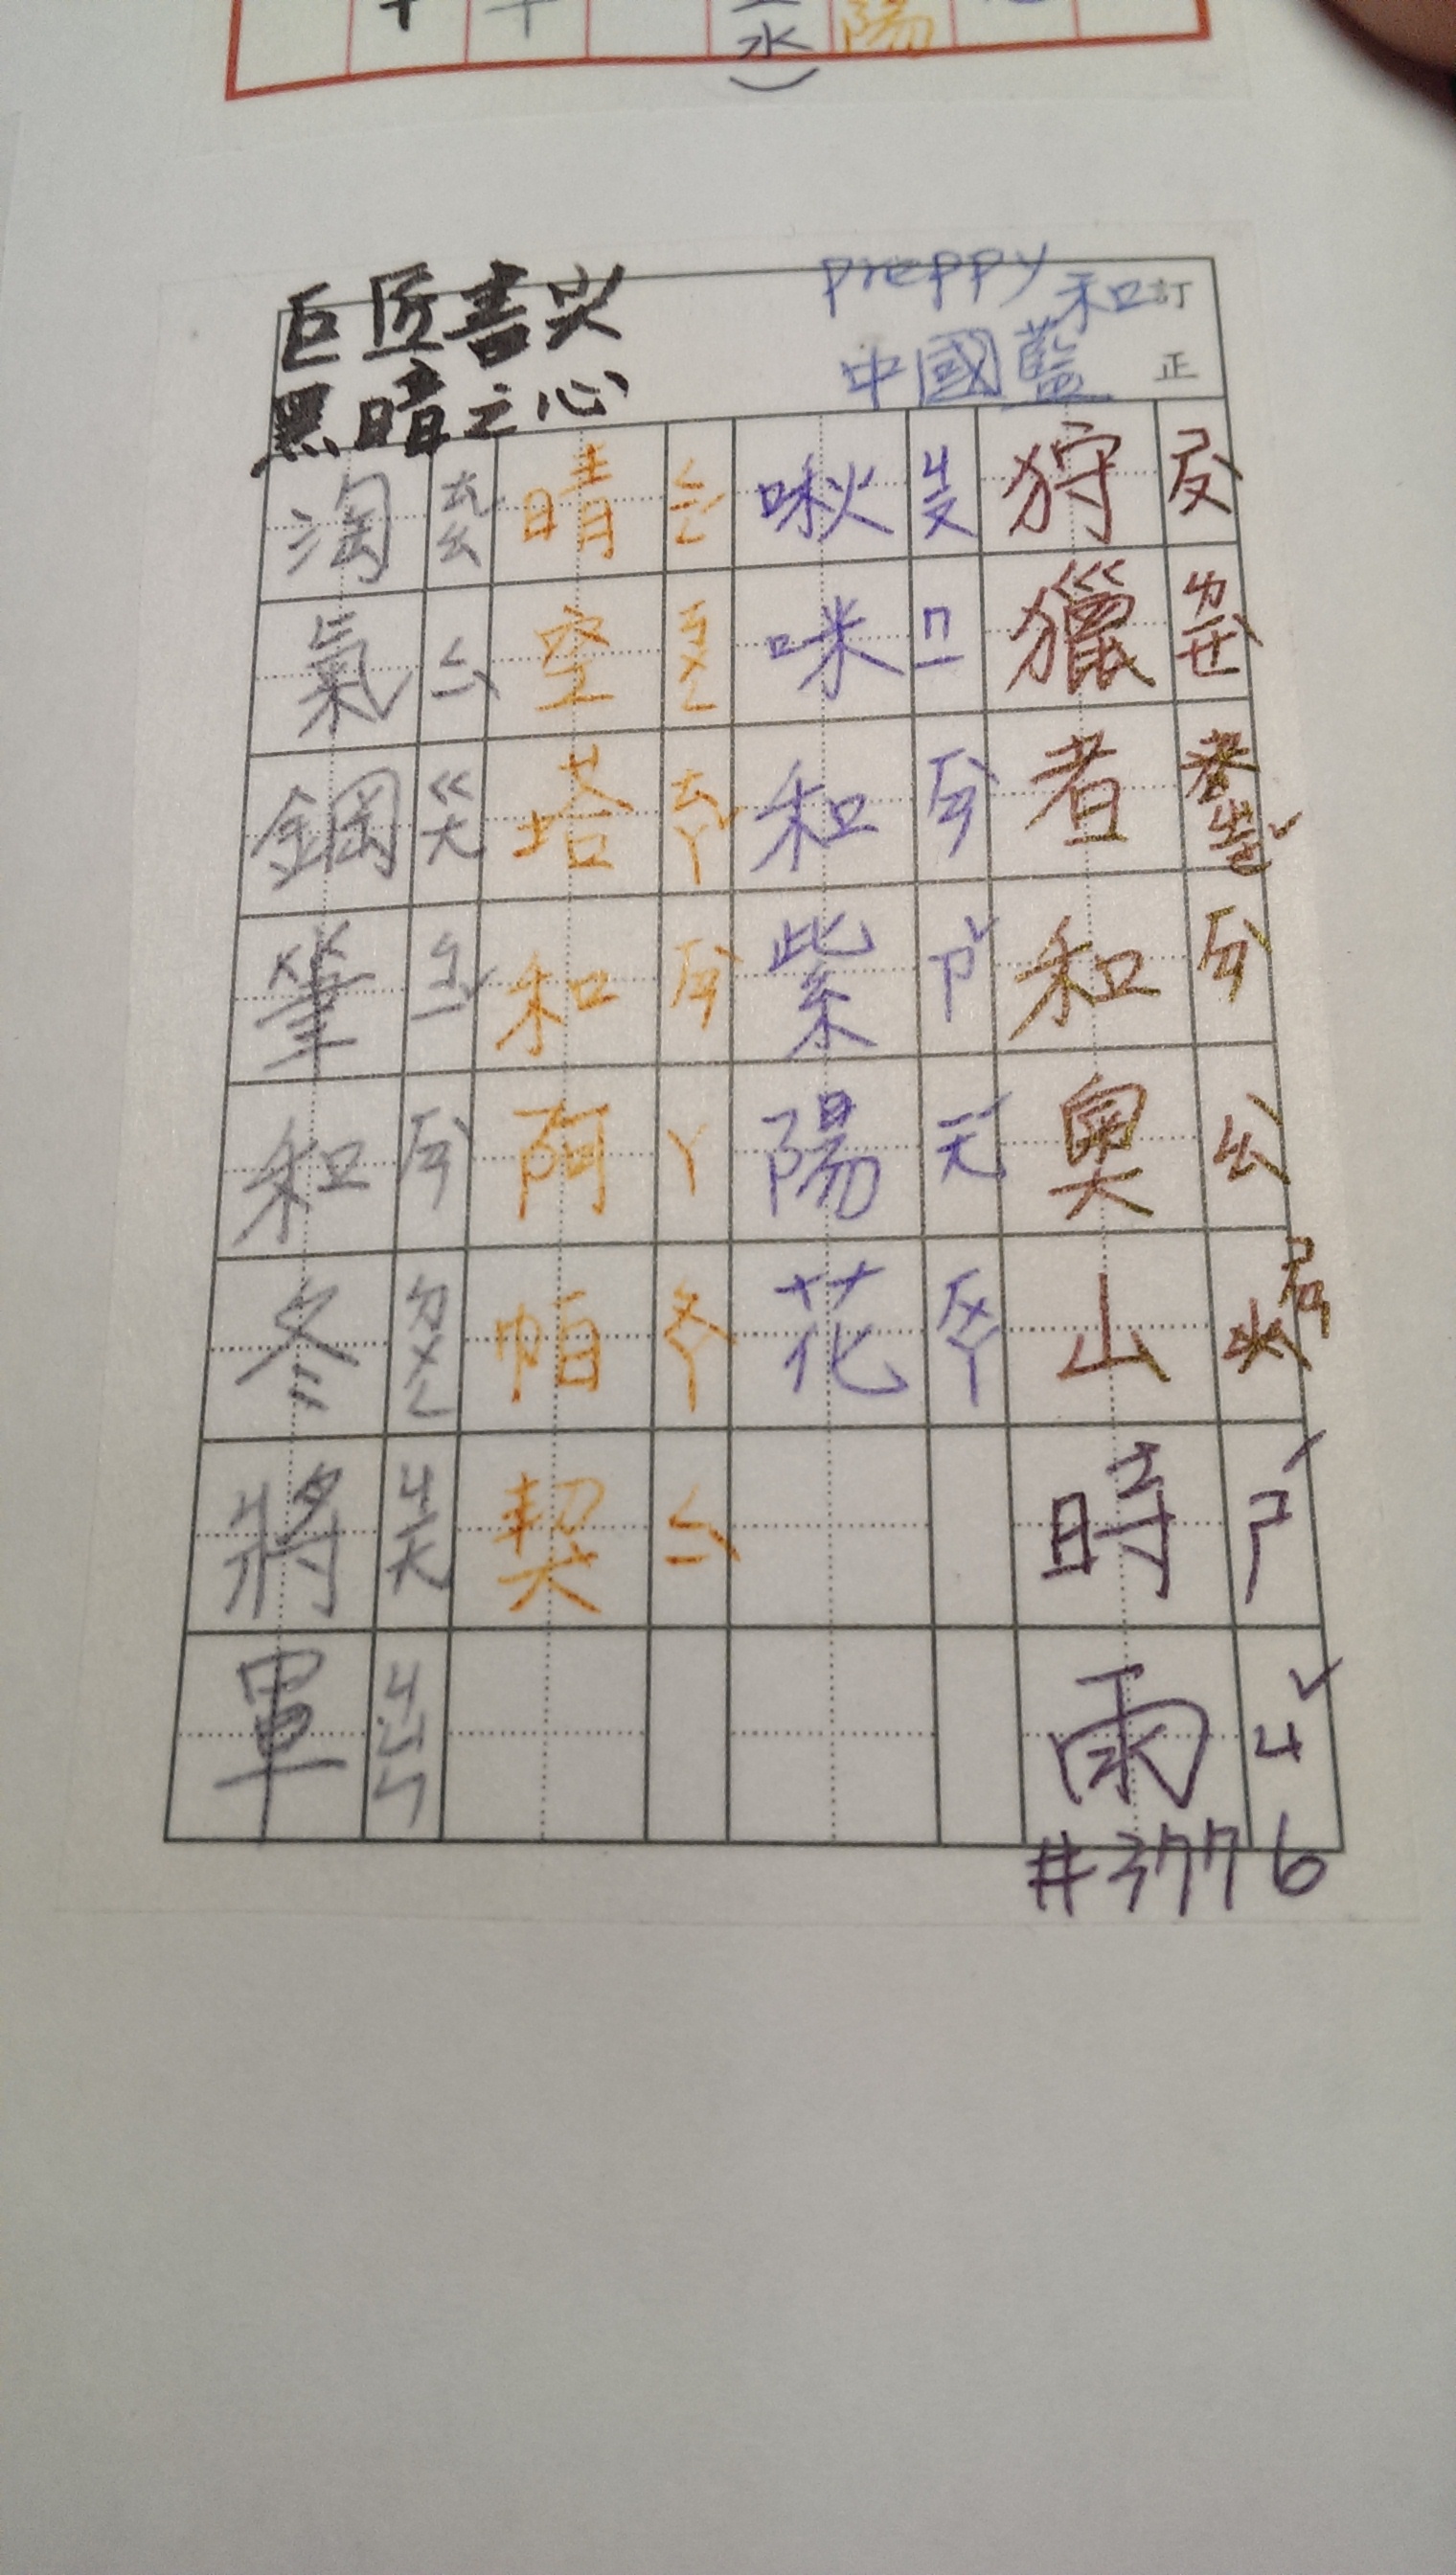 水)
陽
巨匠書寫
黑暗之心
preppy和
中國藍
訂正
狩獵者和奧山
ㄕㄡˋ ㄌㄧㄝˋ ㄓㄜˇ ㄏㄢˋ ㄠˋ ㄕㄢ
時雨
ㄕˊ ㄩˇ
#3776
啾咪和紫陽花
ㄐㄧㄡ ㄇㄧ ㄏㄢˋ ㄗˇ ㄧㄤˊ ㄏㄨㄚ
晴空塔和阿帕契
ㄑㄧㄥˊ ㄎㄨㄥ ㄊㄚˇ ㄏㄢˋ ㄚ ㄆㄚˋ ㄑㄧˋ
淘氣鋼筆和冬將軍
ㄊㄠˊ ㄑㄧˋ ㄍㄤ ㄅㄧˇ ㄏㄢˋ ㄉㄨㄥ ㄐㄧㄤ ㄐㄩㄣ